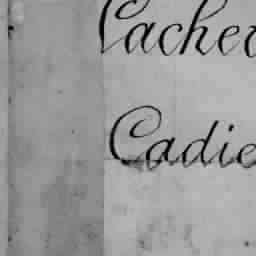 Cacher
Cadie